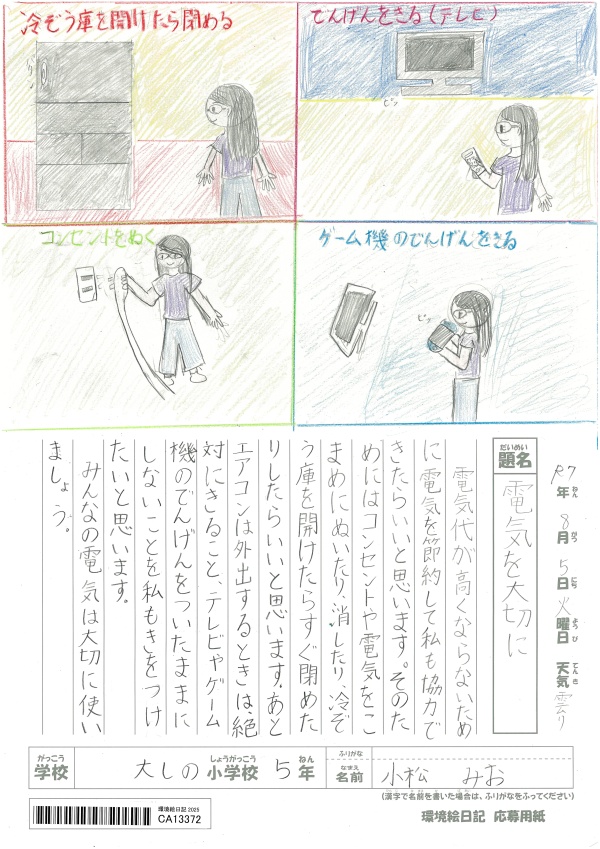 冷ぞう庫を開けたら閉める
でんげんをきる(テレビ)
パタン
ピッ
コンセントをぬく
ゲーム機のでんげんをきる
ピッ
R7年 8月 5日 火曜日 天気 曇り
ねん がつ にち ようび てんき
だいめい
題名
電気を大切に
電気代が高くならないため
に電気を節約して私も協力で
きたらいいと思います。そのた
めにはコンセントや電気をこ
まめにぬいたり、消したり、冷ぞ
う庫を開けたらすぐ閉めた
りしたらいいと思います。あと
エアコンは外出するときは、絶
対にきること、テレビやゲーム
機のでんげんをついたままに
しないことを私もきをつけ
たいと思います。
みんなの電気は大切に使い
ましょう。
がっこう
学校
大しの 小学校 5年
しょうがっこう ねん
ふりがな
なまえ
名前
小松 みお
(漢字で名前を書いた場合は、ふりがなをふってください)
環境絵日記 2025
CA13372
環境絵日記 応募用紙